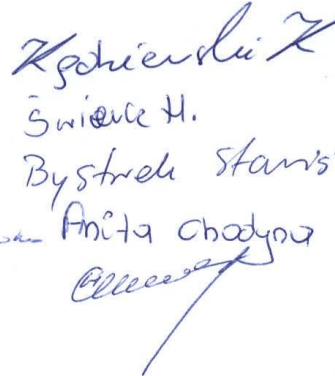 Kędzierski K
Świerk H.
Bystrek Stanis
Anita Chodyna